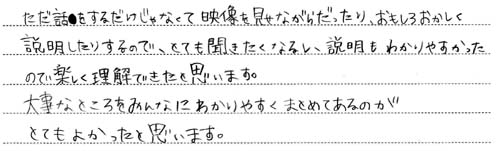 ただ話をするだけじゃなくて映像を見せながらだったり、おもしろおかしく
説明したりするので、とても聞きたくなるし、説明もわかりやすかった
ので楽しく理解できたと思います。
大事なところをみんなにわかりやすくまとめてあるのが
とてもよかったと思います。